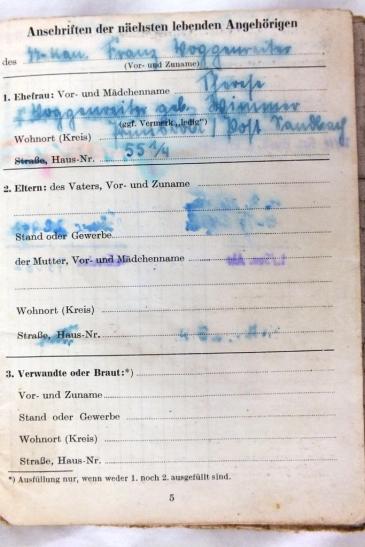 Anschriften der nächsten lebenden Angehörigen
des Franz Woggenreiter
(Vor- und Zuname)
1. Ehefrau: Vor- und Mädchenname Therese
Woggenreiter geb. Wimmer
(ggf. Vermerk „ledig")
Wohnort (Kreis) Post Sandbach
Straße, Haus-Nr. 55 1/4
2. Eltern: des Vaters, Vor- und Zuname
Stand oder Gewerbe
der Mutter, Vor- und Mädchenname
Wohnort (Kreis)
Straße, Haus-Nr.
3. Verwandte oder Braut:*)
Vor- und Zuname
Stand oder Gewerbe
Wohnort (Kreis)
Straße, Haus-Nr.
*) Ausfüllung nur, wenn weder 1. noch 2. ausgefüllt sind.
5